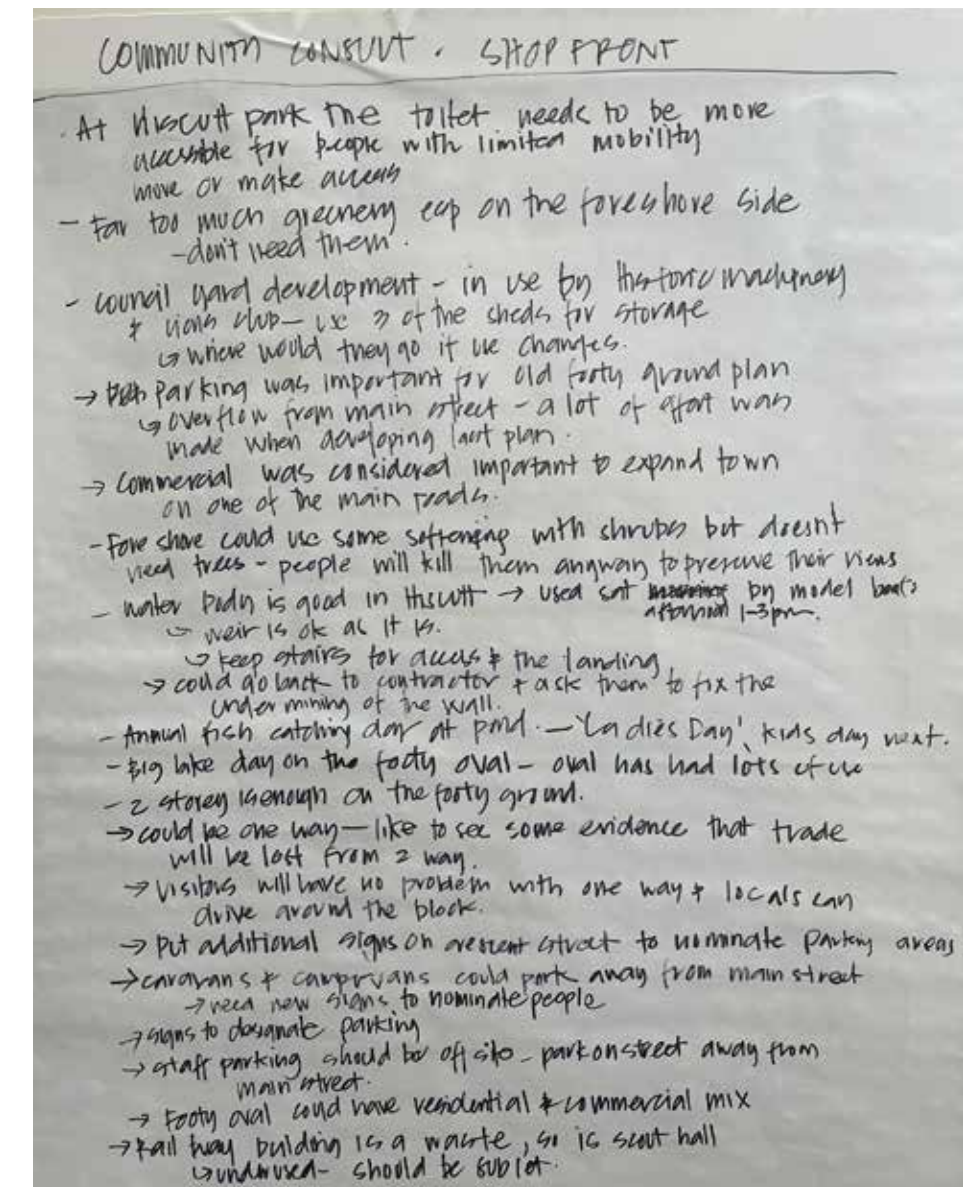 COMMUNITY CONSULT. SHOP FRONT
· At Hiscutt park the toilet needs to be more
accessible for people with limited mobility
move or make access
- Far too much greenery esp on the foreshore side
- don't need them.
- council yard development - in use by Historic machinery
& lions club - use 3 of the sheds for storage
↳ where would they go if use changes.
→ Parking was important for old footy ground plan
↳ overflow from main street - a lot of effort was
made when developing last plan.
→ Commercial was considered important to expand town
on one of the main roads.
- Fore shore could use some softening with shrubs but doesnt
need trees - people will kill them anyway to preserve their views
- water body is good in Hiscutt → used sat by model boats
afternoon 1-3pm.
↳ weir is ok as it is.
↳ keep stairs for access & the landing
→ could go back to contractor & ask them to fix the
undermining of the wall.
- Annual fish catching day at pond. - 'Ladies Day', kids day next.
- Big lake day on the footy oval - oval has had lots of use
- 2 storey is enough on the footy ground.
→ could be one way - like to see some evidence that trade
will be lost from 2 way.
→ visitors will have no problem with one way & locals can
drive around the block.
→ put additional signs on crescent street to nominate parking areas
→ caravans & campervans could park away from main street
→ need new signs to nominate people
→ signs to dosignate parking
→ staff parking should be off site - park on street away from
main street.
→ Footy oval could have residential & commercial mix
→ Rail way bulding is a waste, so is scout hall
↳ underused - should be sublet.